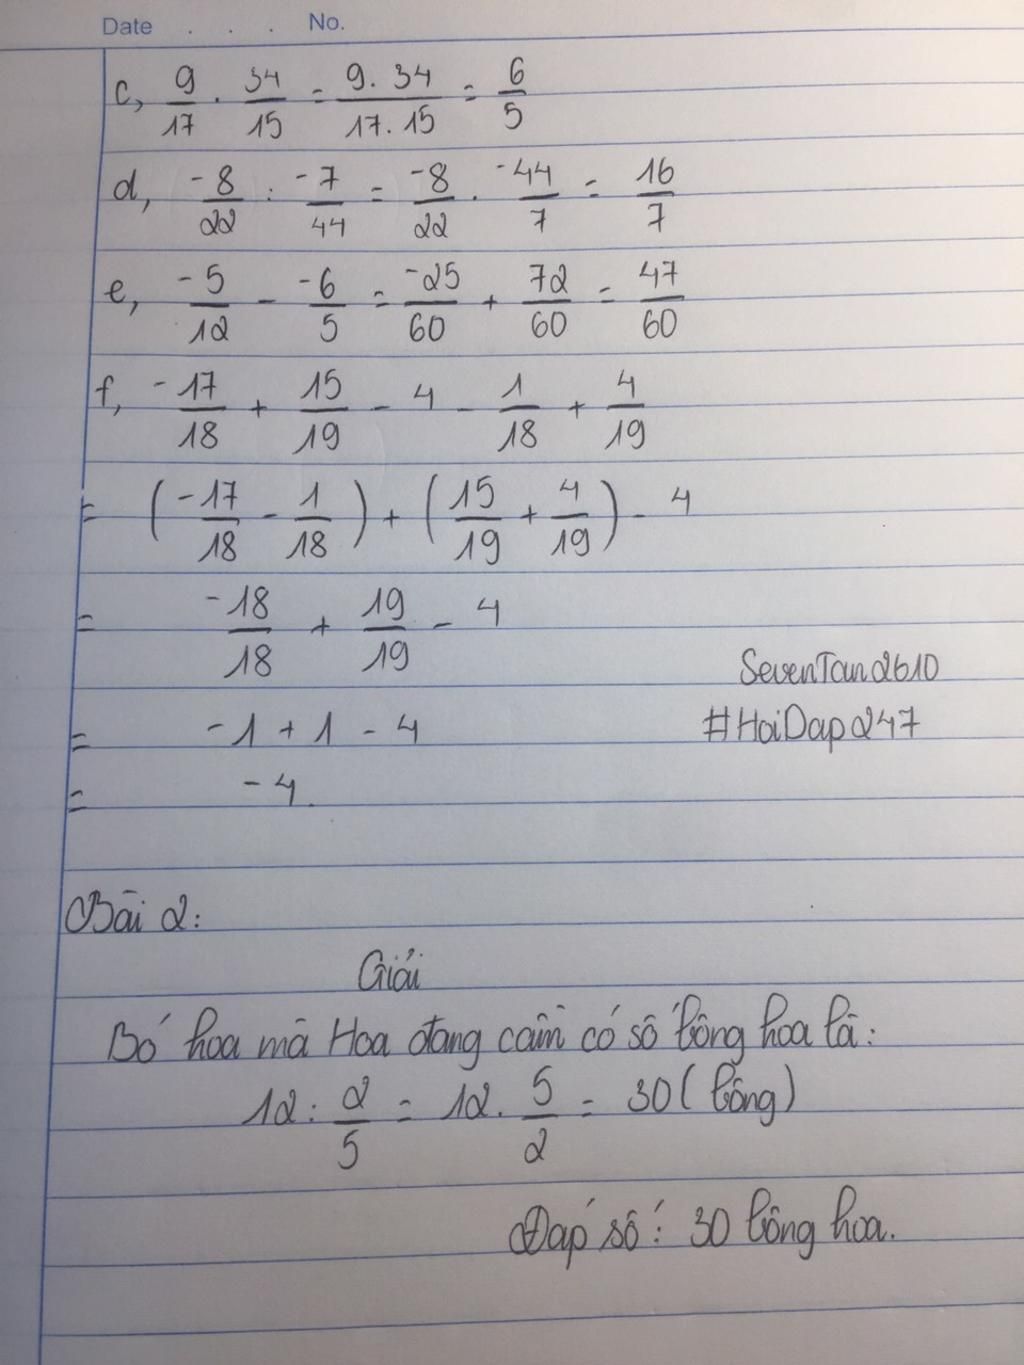 Date . . . No.
c, 9/17 . 34/15 = 9.34/17.15 = 6/5
d, -8/22 : -7/44 = -8/22 . -44/7 = 16/7
e, -5/12 - -6/5 = -25/60 + 72/60 = 47/60
f, -17/18 + 15/19 - 4 - 1/18 + 4/19
= (-17/18 - 1/18) + (15/19 + 4/19) - 4
= -18/18 + 19/19 - 4
SevenTan2610
= -1 + 1 - 4
#HoiDap247
= -4.
Bài 2:
Giải
Bó hoa mà Hoa đang cầm có số bông hoa là:
12 : 2/5 = 12 . 5/2 = 30 (bông)
Đáp số: 30 bông hoa.